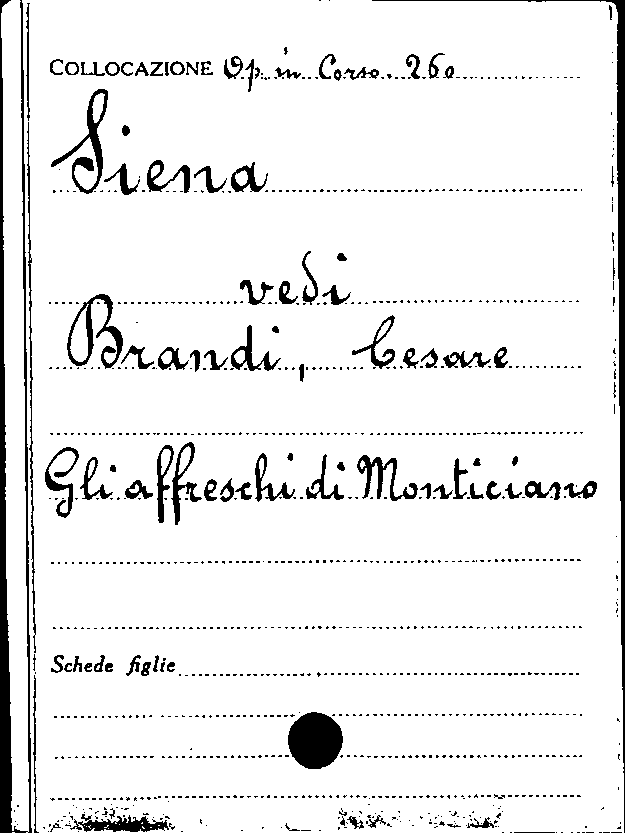 COLLOCAZIONE Op. in Corso. 260
Siena
vedi
Brandi, Cesare
Gli affreschi di Monticiano
Schede figlie